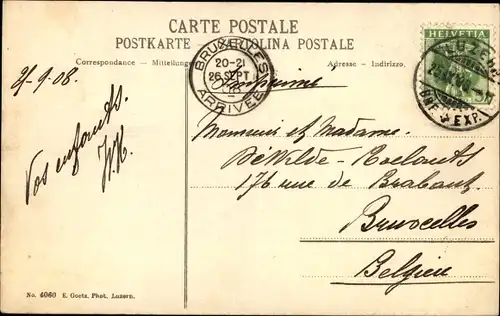 CARTE POSTALE
POSTKARTE CARTOLINA POSTALE
Correspondance - Mitteilung
Adresse - Indirizzo.
BRUXELLES
20-21
26 SEPT
ARRIVÉE
HELVETIA
LUZERN
BRF. EXP.
Imprimé
9.08.
Vos enfants.
W.K.
Monsieur et Madame.
DeWilde-Roelants
176 rue de Brabant.
Bruxelles
Belgien
No. 4060 E. Goetz, Phot., Luzern.